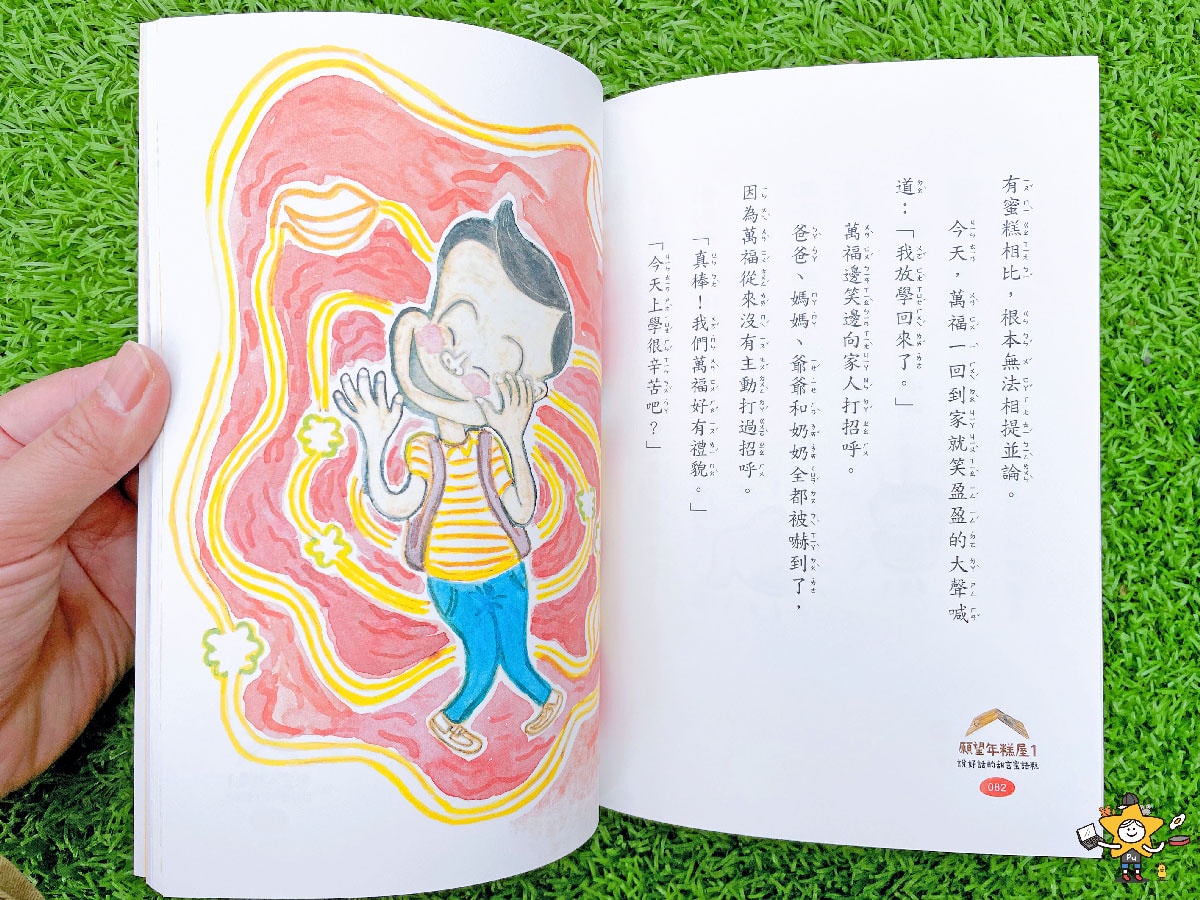 有蜜糕相比，根本無法相提並論。
今天，萬福一回到家就笑盈盈的大聲喊
道：「我放學回來了。」
萬福邊笑邊向家人打招呼。
爸爸、媽媽、爺爺和奶奶全都被嚇到了，
因為萬福從來沒有主動打過招呼。
「真棒！我們萬福好有禮貌。」
「今天上學很辛苦吧？」
願望年糕屋1
說好話的甜言蜜語糕
082
Pu